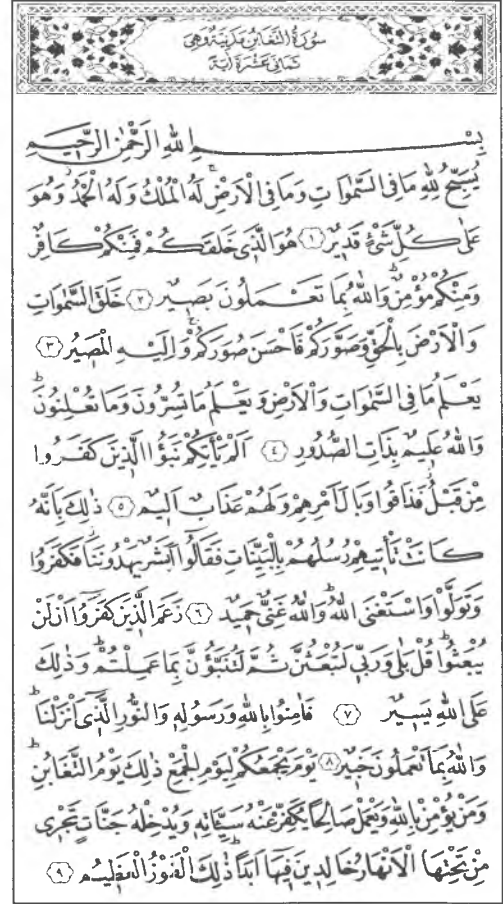 سُورَةُ التَّغَابُنِ مَدَنِيَّةٌ وَهِيَ
ثَمَانِيَ عَشْرَةَ اٰيَةً
بِسْمِ اللّٰهِ الرَّحْمٰنِ الرَّحِيمِ
يُسَبِّحُ لِلّٰهِ مَا فِى السَّمٰوَاتِ وَمَا فِى الْاَرْضِۚ لَهُ الْمُلْكُ وَلَهُ الْحَمْدُۘ وَهُوَ
عَلٰى كُلِّ شَىْءٍ قَدِيرٌ ﴿١﴾ هُوَ الَّذِى خَلَقَكُمْ فَمِنْكُمْ كَافِرٌ
وَمِنْكُمْ مُؤْمِنٌۜ وَاللّٰهُ بِمَا تَعْمَلُونَ بَصِيرٌ ﴿٢﴾ خَلَقَ السَّمٰوَاتِ
وَالْاَرْضَ بِالْحَقِّ وَصَوَّرَكُمْ فَاَحْسَنَ صُوَرَكُمْۚ وَاِلَيْهِ الْمَصِيرُ ﴿٣﴾
يَعْلَمُ مَا فِى السَّمٰوَاتِ وَالْاَرْضِ وَيَعْلَمُ مَا تُسِرُّونَ وَمَا تُعْلِنُونَۜ
وَاللّٰهُ عَلِيمٌ بِذَاتِ الصُّدُورِ ﴿٤﴾ اَلَمْ يَأْتِكُمْ نَبَؤُا الَّذِينَ كَفَرُوا
مِنْ قَبْلُۘ فَذَاقُوا وَبَالَ اَمْرِهِمْ وَلَهُمْ عَذَابٌ اَلِيمٌ ﴿٥﴾ ذٰلِكَ بِاَنَّهُ
كَانَتْ تَأْتِيهِمْ رُسُلُهُمْ بِالْبَيِّنَاتِ فَقَالُوا اَبَشَرٌ يَهْدُونَنَاۘ فَكَفَرُوا
وَتَوَلَّوْا وَاسْتَغْنَى اللّٰهُۜ وَاللّٰهُ غَنِىٌّ حَمِيدٌ ﴿٦﴾ زَعَمَ الَّذِينَ كَفَرُوا اَنْ لَنْ
يُبْعَثُواۜ قُلْ بَلٰى وَرَبِّى لَتُبْعَثُنَّ ثُمَّ لَتُنَبَّؤُنَّ بِمَا عَمِلْتُمْۜ وَذٰلِكَ
عَلَى اللّٰهِ يَسِيرٌ ﴿٧﴾ فَاٰمِنُوا بِاللّٰهِ وَرَسُولِهِ وَالنُّورِ الَّذِى اَنْزَلْنَاۜ
وَاللّٰهُ بِمَا تَعْمَلُونَ خَبِيرٌ ﴿٨﴾ يَوْمَ يَجْمَعُكُمْ لِيَوْمِ الْجَمْعِ ذٰلِكَ يَوْمُ التَّغَابُنِۜ
وَمَنْ يُؤْمِنْ بِاللّٰهِ وَيَعْمَلْ صَالِحًا يُكَفِّرْ عَنْهُ سَيِّـَٔاتِهِ وَيُدْخِلْهُ جَنَّاتٍ تَجْرِى
مِنْ تَحْتِهَا الْاَنْهَارُ خَالِدِينَ فِيهَا اَبَدًاۜ ذٰلِكَ الْفَوْزُ الْعَظِيمُ ﴿٩﴾